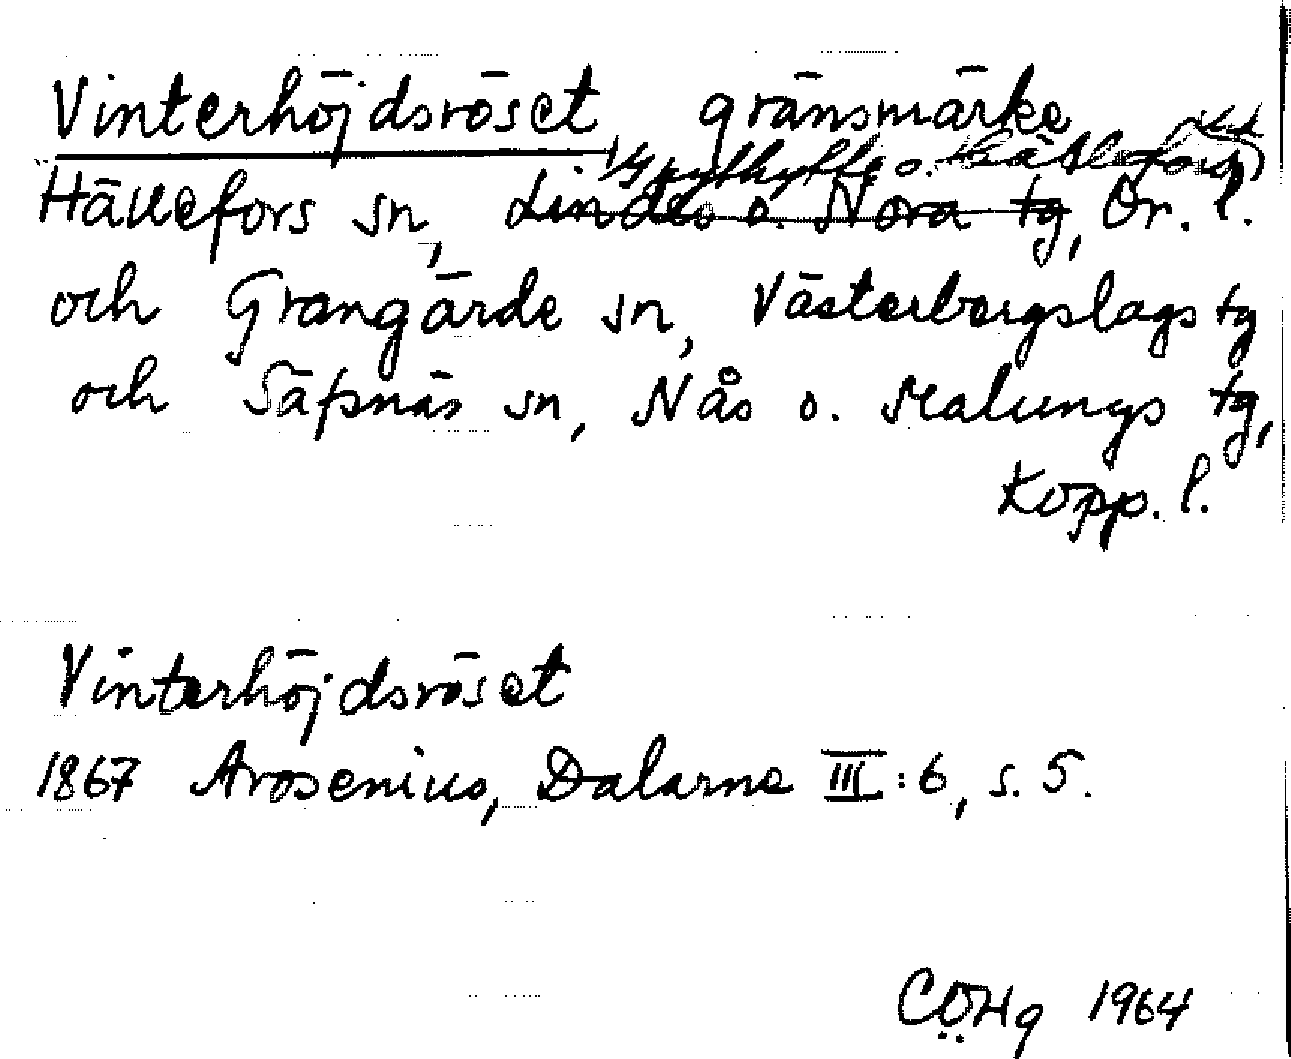 Vinterhöjdsröset, gränsmärke
Grythytte o. Hällefors
Hällefors sn, Lindes o. Nora tg, Ör. l.
och Grangärde sn, Västerbergslags tg
och Säfsnäs sn, Nås o. Malungs tg,
Kopp. l.
Vinterhöjdsröset
1867 Arosenius, Dalarne III:6, s. 5.
CÖHg 1964